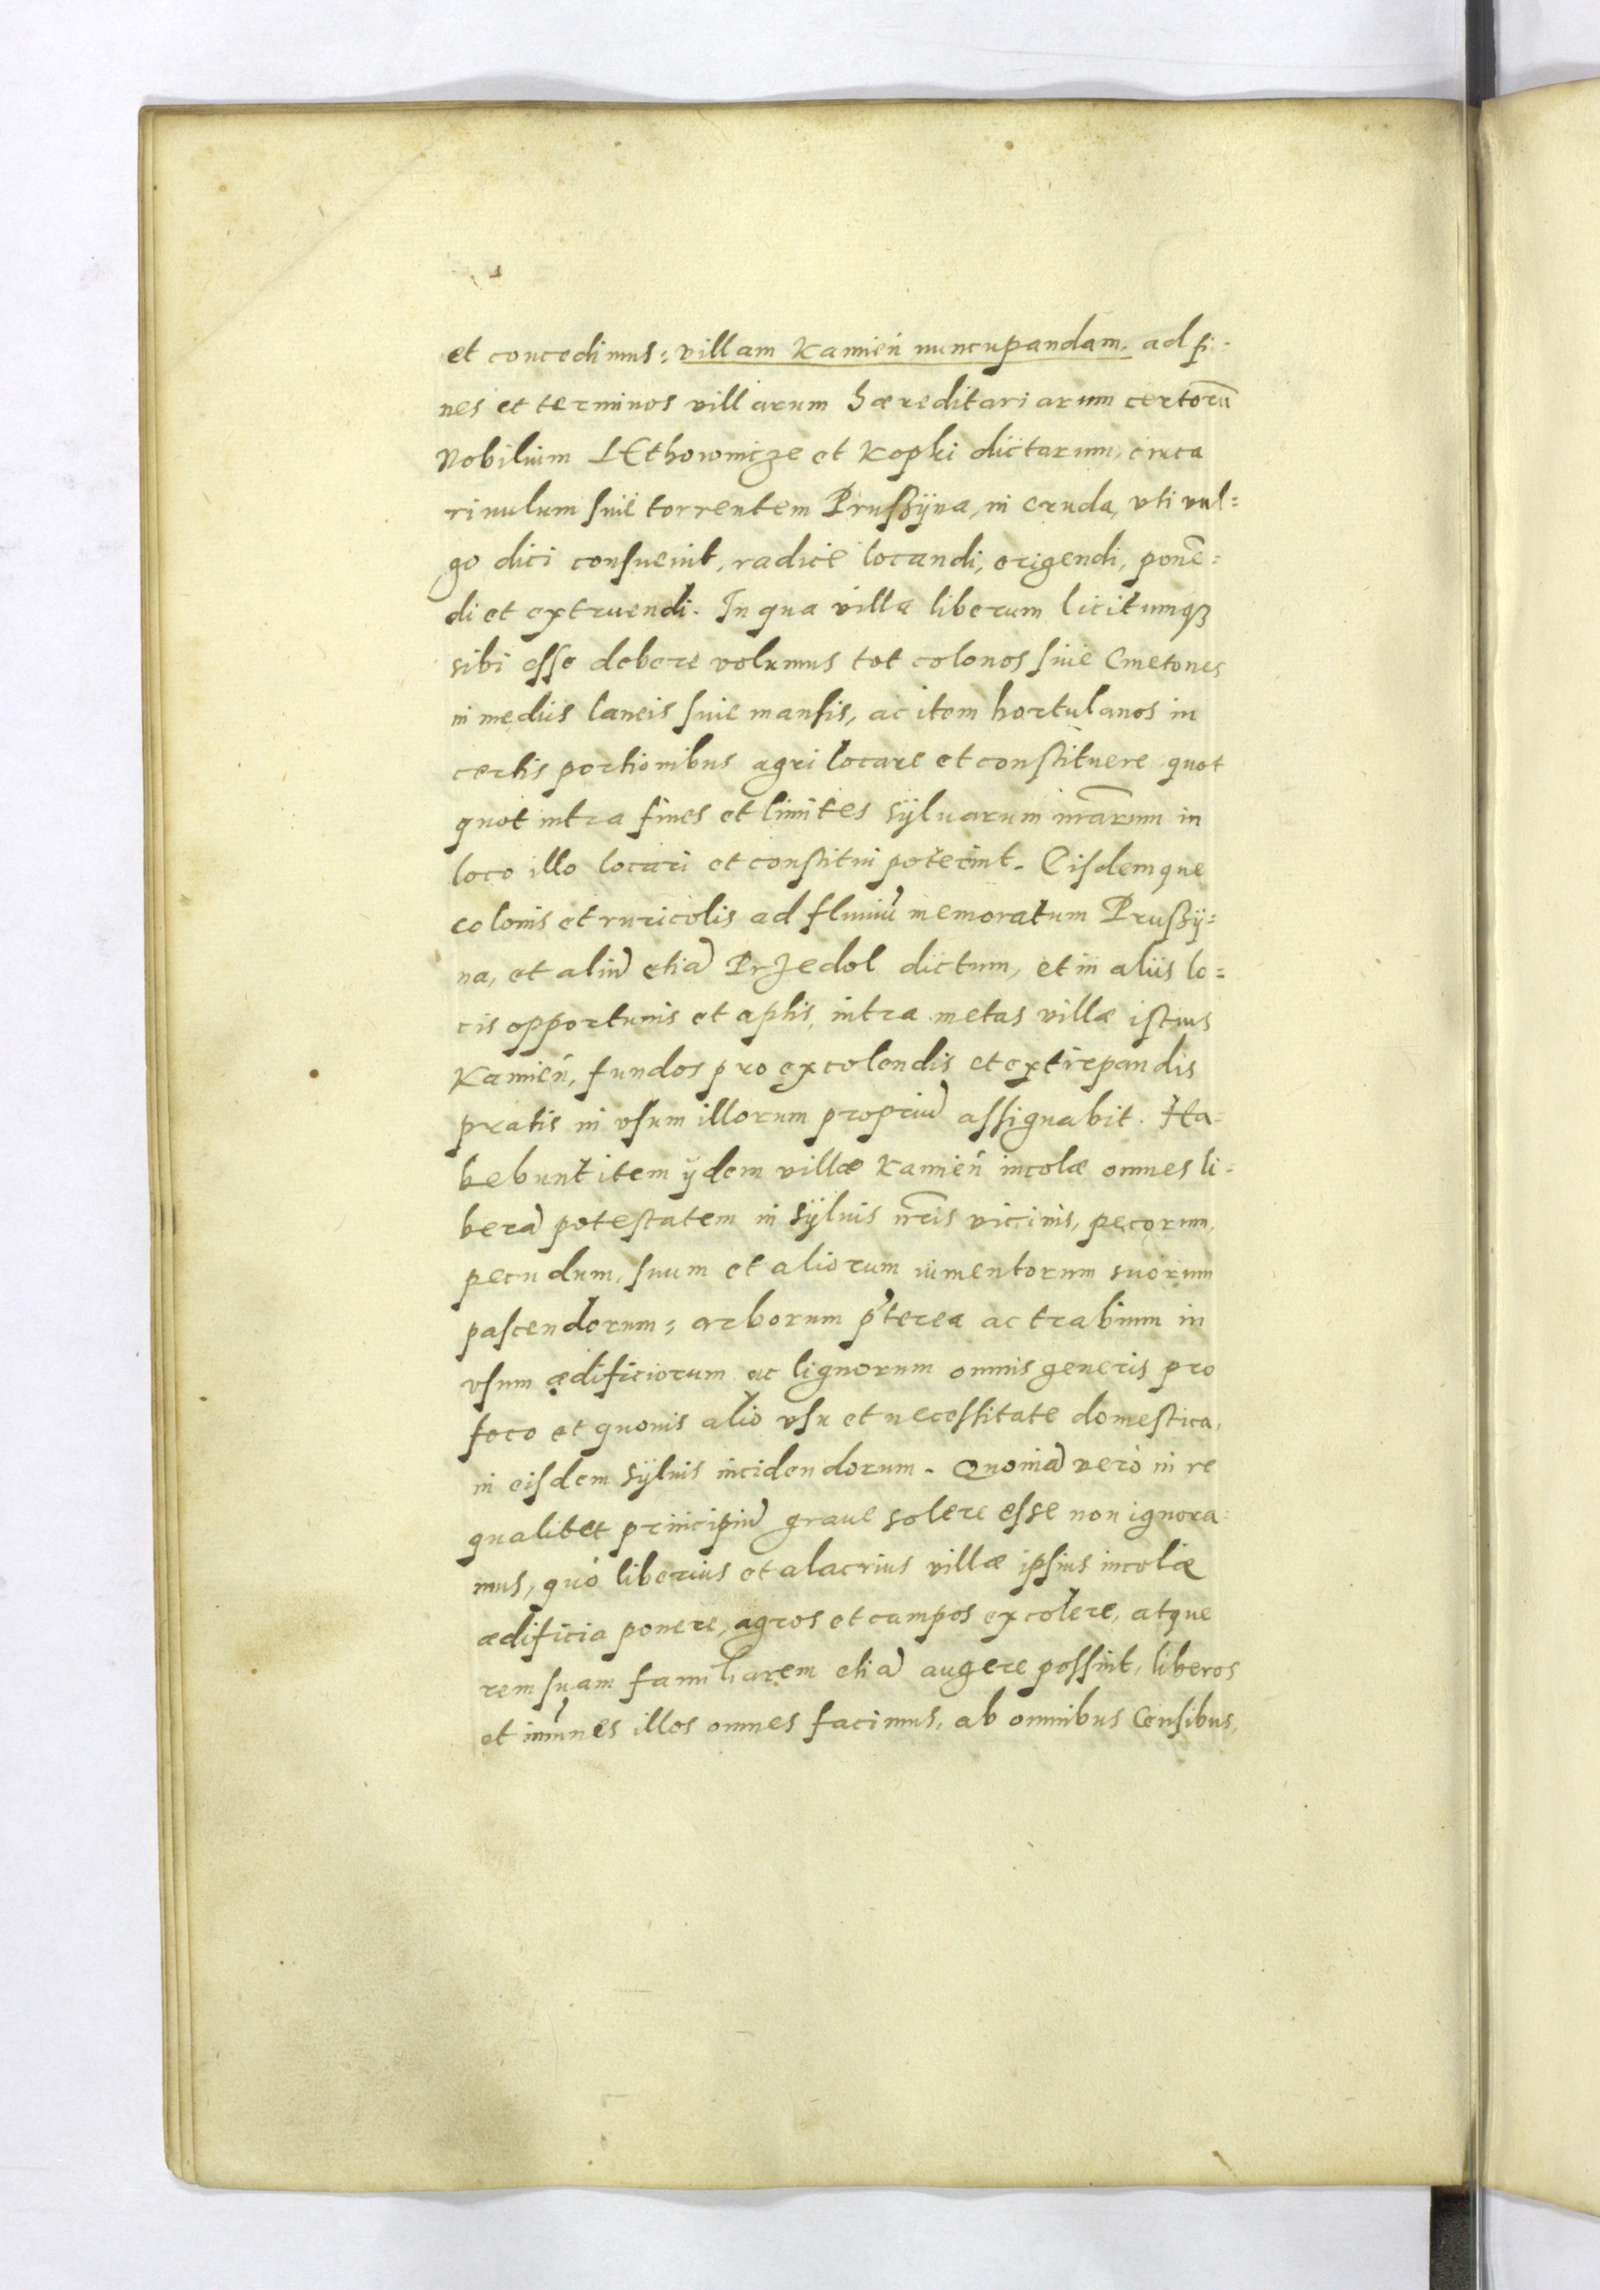 et concedimus: villam Kamień nuncupandam. ad fi-
nes et terminos villarum hæreditariarum certorū
Nobilium LEthownicze et Kopki dictarum, circa
riuulum siue torrentem Prusßijna, in cruda, vti vul=
go dici consueuit, radice locandi, erigendi, ponē=
di et extruendi. In qua villa liberum licitumqꝫ
sibi esse debere volumus tot colonos siue Cmetones
in mediis laneis siue mansis, ac item hortulanos in
certis portionibus agri locare et constituere quot
quot intra fines et limites sÿluarum nr̃arum in
loco illo locari et constitui poterint. Eisdemque
colonis et ruricolis ad fluuiū memoratum Prußÿ=
na, et aliū etiā Przedol dictum, et in aliis lo=
cis opportunis et aptis, intra metas villæ istius
Kamień, fundos pro excolendis et extirpandis
pratis in vsum illorum propriū assignabit. Ha-
bebunt item ÿdem villæ Kamień incolæ omnes li=
berā potestatem in sÿluis nr̃is vicinis, pecorum,
pecudum, suum et aliorum iumentorum suorum
pascendorum; arborum p̃terea ac trabium in
vsum ædificiorum ac lignorum omnis generis pro
foco et quouis alio vsu et necessitate domestica,
in eisdem sÿluis incidendorum. Quoniā verò in re
qualibet principiū graue solere esse non ignora=
mus, quò liberius et alacrius villæ ipsius incolæ
ædificia ponere, agros et campos excolere, atque
rem suam familiarem etiā augere possint, liberos
et imūnes illos omnes facimus, ab omnibus Censibus,